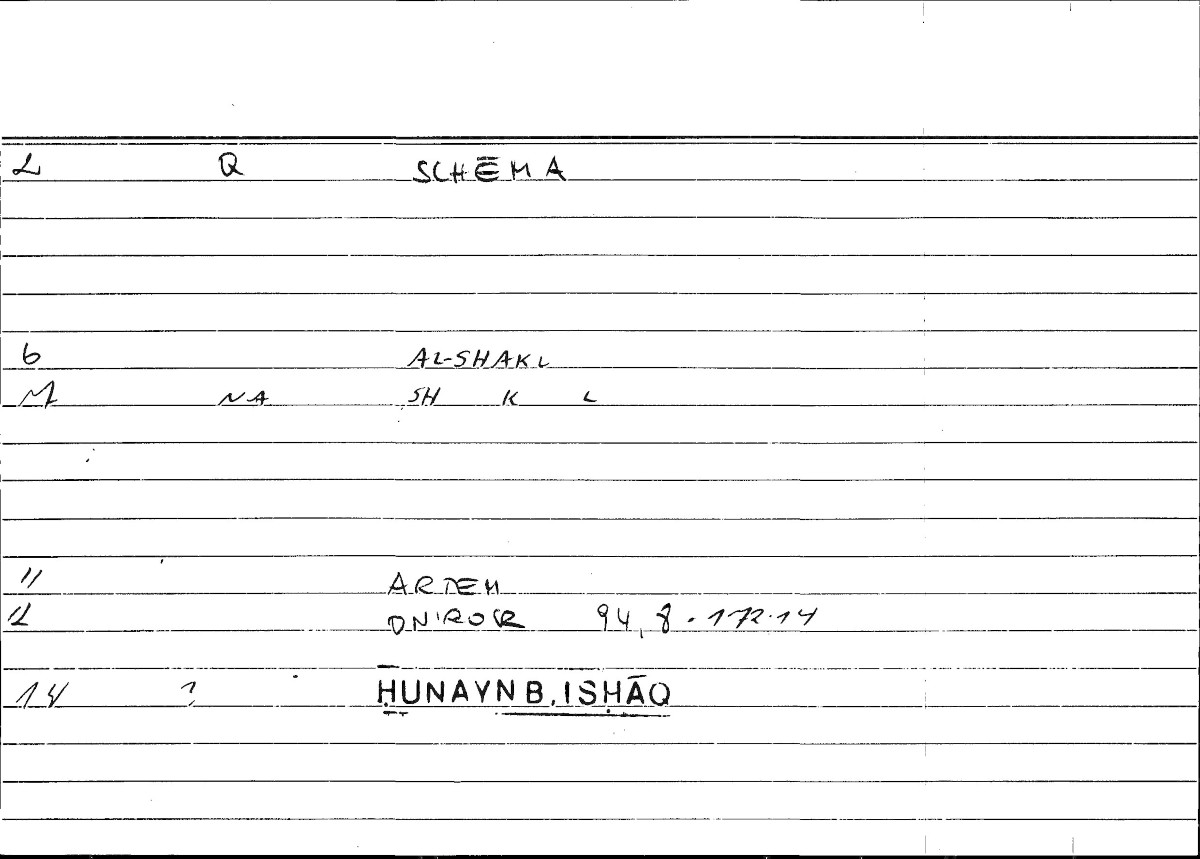 2 Q SCHĒMA
6 AL-SHAKL
M NA SH K L
11 ARTEM
12 ONIROCR 94,8 · 172.14
14 ? ḤUNAYN B. ISḤĀQ